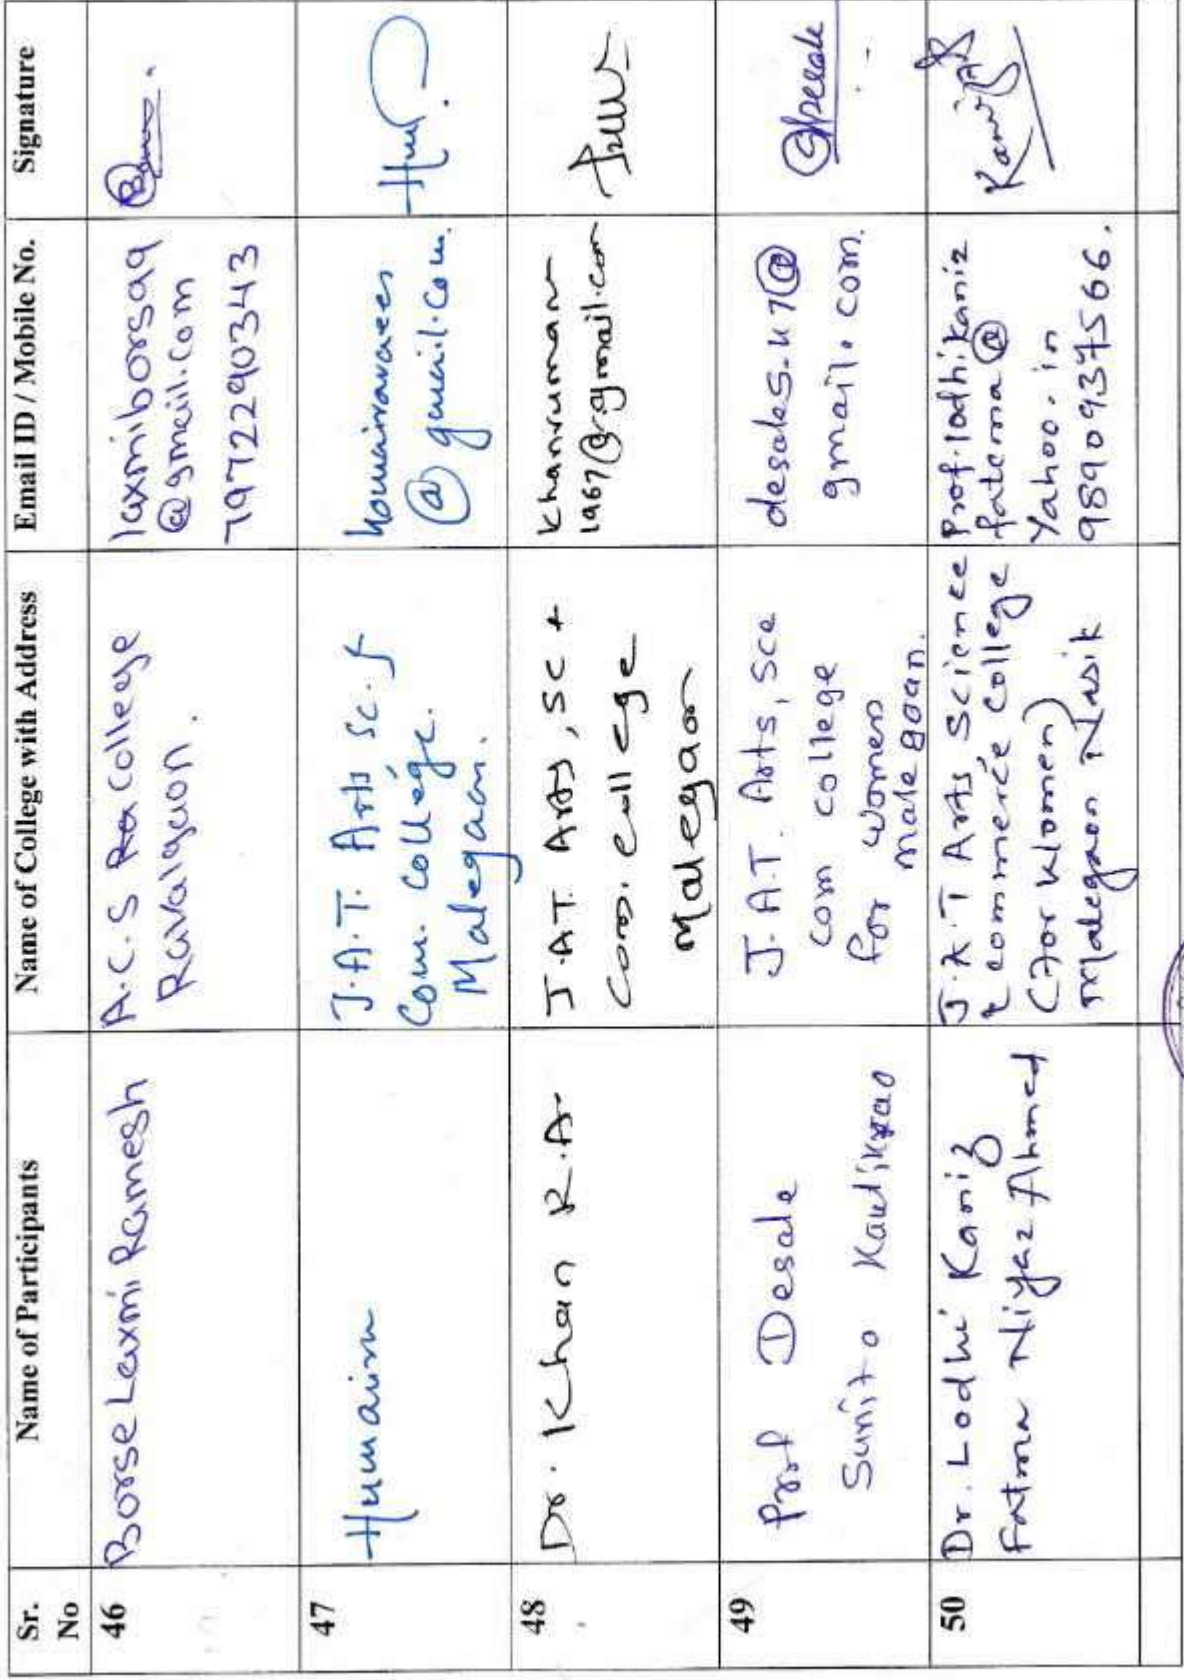 Sr. No
Name of Participants
Name of College with Address
Email ID / Mobile No.
Signature
46
Borse Laxmi Ramesh
A.C.S Ra College
Ravalgaon.
laxmiborsaq
@gmaill.com
7972290343
47
Humaira
J.A.T. Arts Sc. &
Com. College.
Malegaon.
@ gmail.com.
48
Dr. Khan R.A
J.A.T. Arts, SC +
Com. college
Malegaon
Khanruman
1967@gmail.com
49
Prof Desale
Sunita Kautikrao
J.A.T. Arts, Sce
com college
for women
malegoan.
desales.47@
gmail.com.
50
Dr. Lodhi Kaniz
Fatma Niyaz Ahmed
J.A.T Arts Science
& commerce college
(For Women)
Malegaon Nasik
Prof.lodhikaniz
fatema@
Yahoo.in
9890937566.
Kaniz